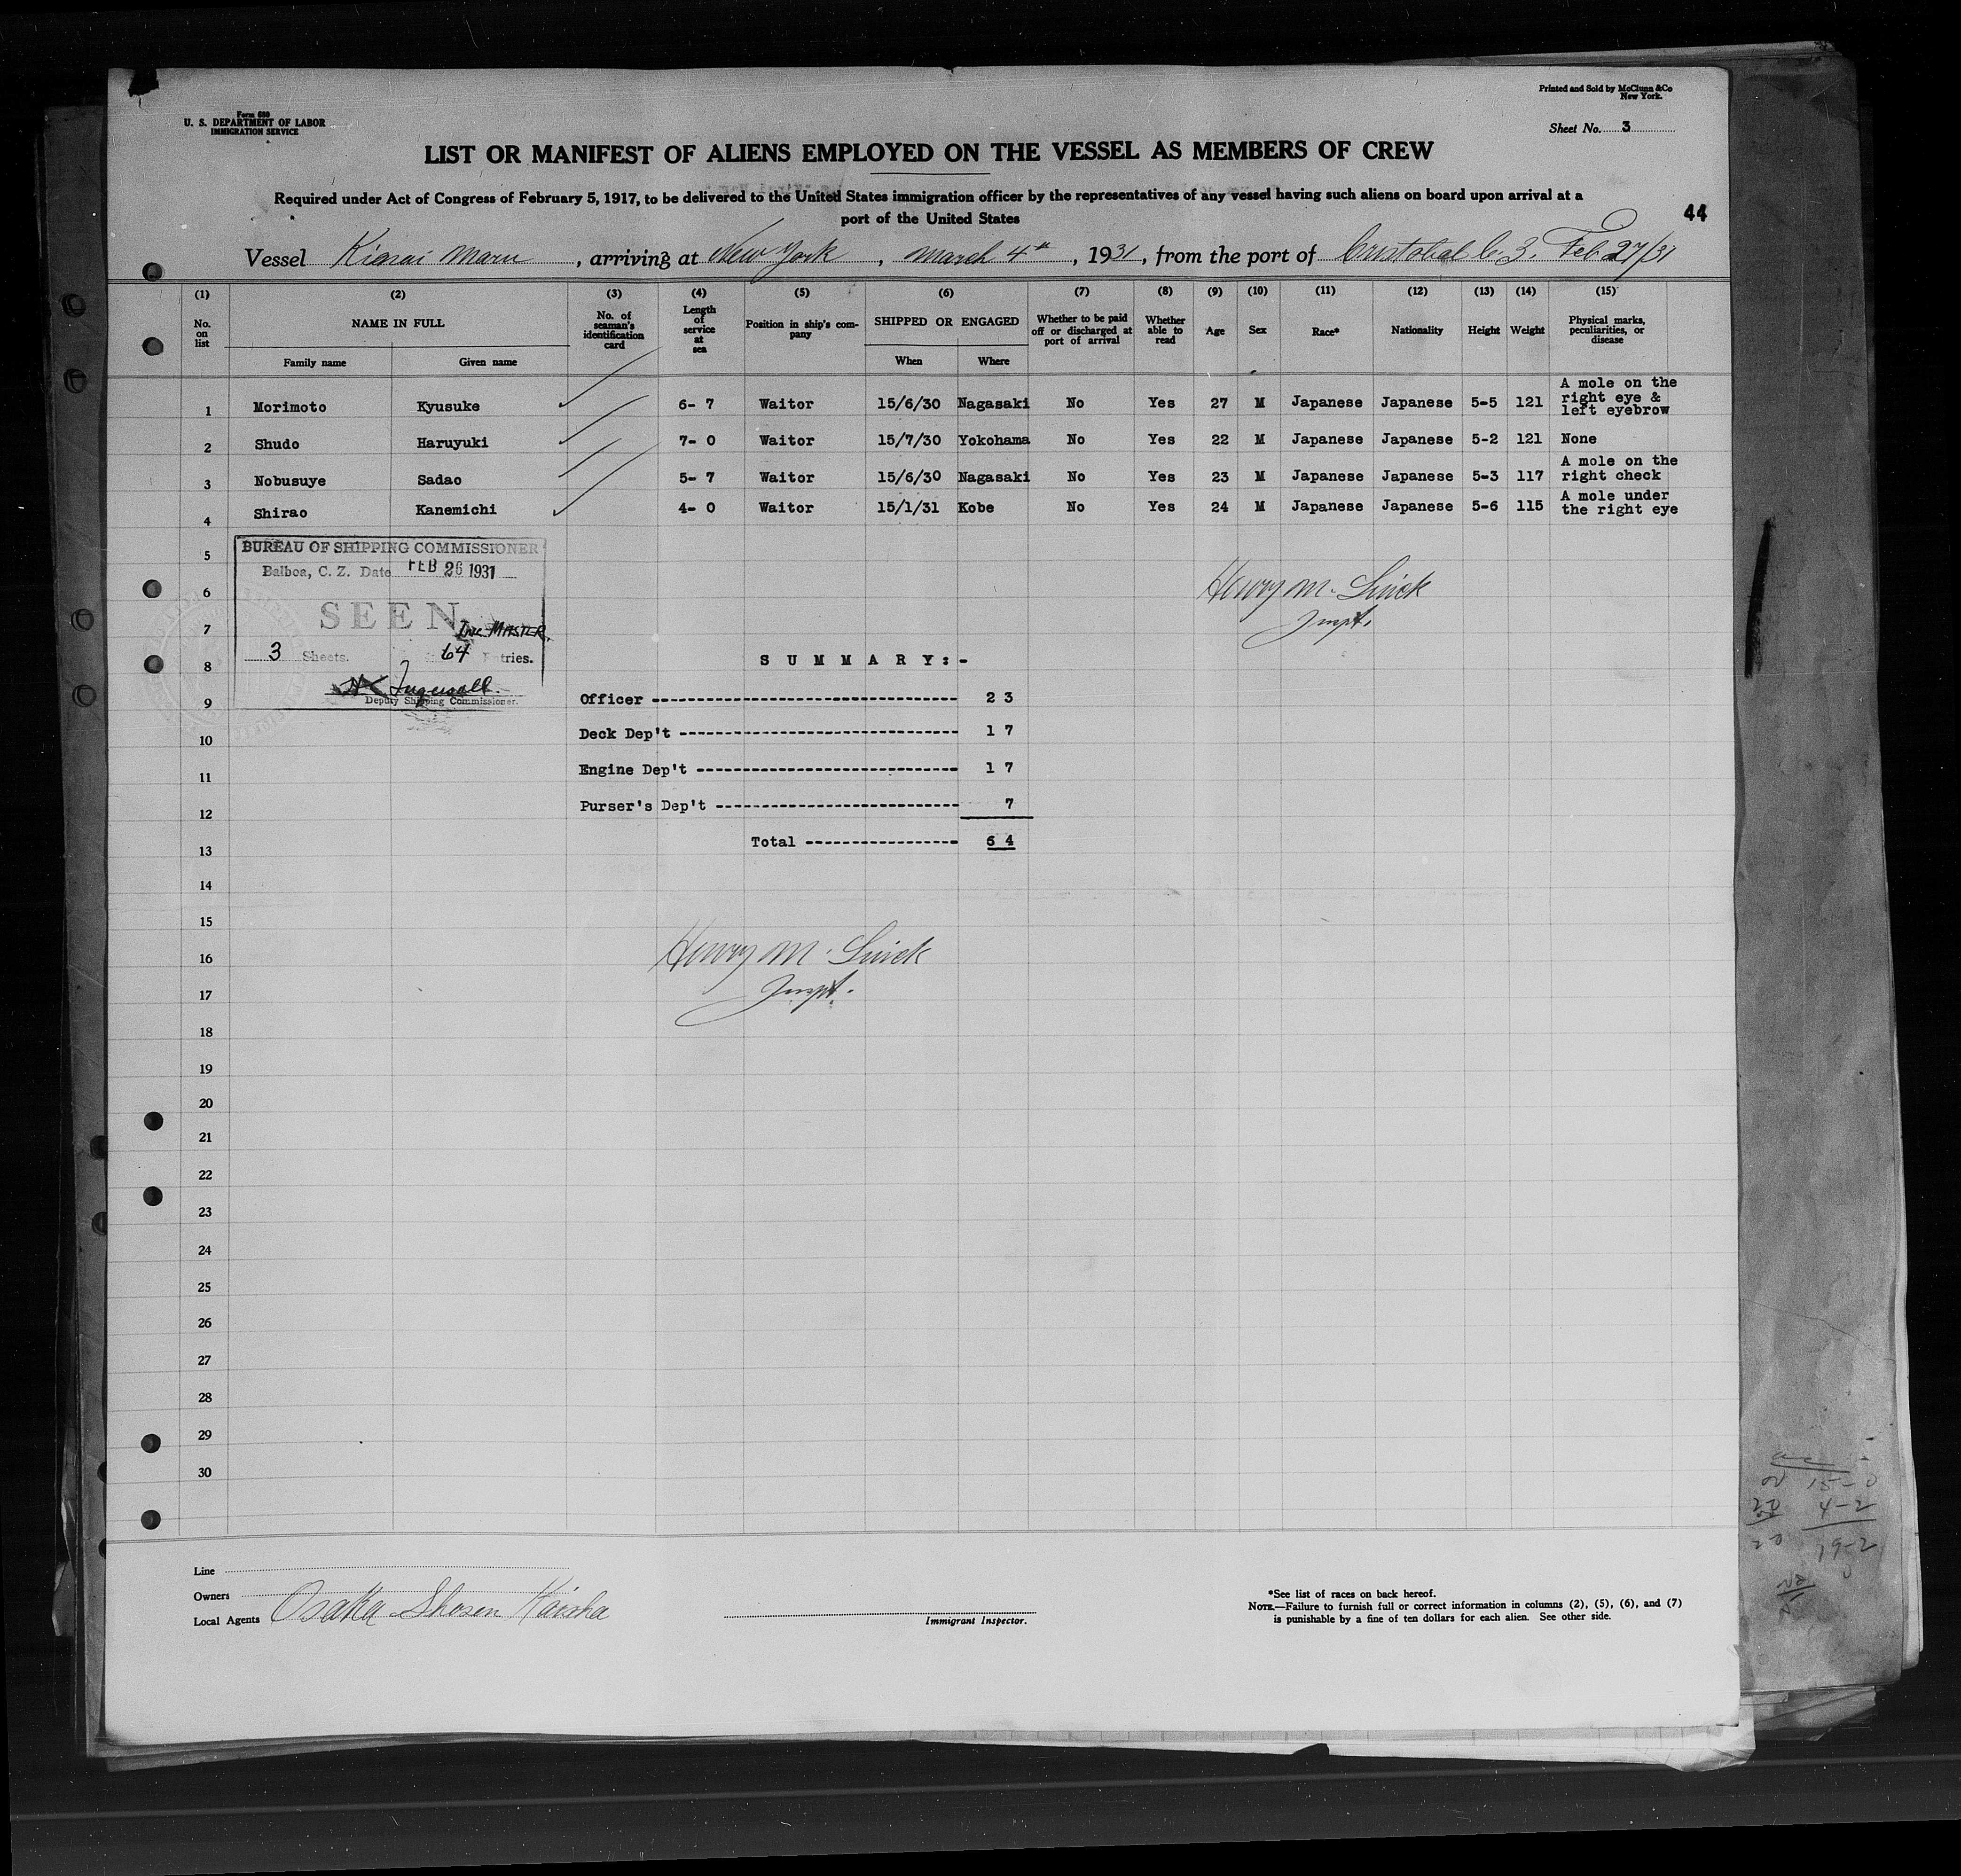 Form 680
U. S. DEPARTMENT OF LABOR
IMMIGRATION SERVICE
Printed and Sold by McClunn &Co
New York.
Sheet No. 3
LIST OR MANIFEST OF ALIENS EMPLOYED ON THE VESSEL AS MEMBERS OF CREW
Required under Act of Congress of February 5, 1917, to be delivered to the United States immigration officer by the representatives of any vessel having such aliens on board upon arrival at a
port of the United States
44
Vessel Kinai Maru, arriving at New York, March 4th, 1931, from the port of Cristobal C. Z. Feb 27/31
(1) (2) (3) (4) (5) (6) (7) (8) (9) (10) (11) (12) (13) (14) (15)
No. on list NAME IN FULL No. of seaman's identification card Length of service at sea Position in ship's company SHIPPED OR ENGAGED Whether to be paid off or discharged at port of arrival Whether able to read Age Sex Race* Nationality Height Weight Physical marks, peculiarities, or disease
Family name Given name When Where
1 Morimoto Kyusuke 6- 7 Waitor 15/6/30 Nagasaki No Yes 27 M Japanese Japanese 5-5 121 A mole on the right eye & left eyebrow
2 Shudo Haruyuki 7- 0 Waitor 15/7/30 Yokohama No Yes 22 M Japanese Japanese 5-2 121 None
3 Nobusuye Sadao 5- 7 Waitor 15/6/30 Nagasaki No Yes 23 M Japanese Japanese 5-3 117 A mole on the right check
4 Shirao Kanemichi 4- 0 Waitor 15/1/31 Kobe No Yes 24 M Japanese Japanese 5-6 115 A mole under the right eye
5
6
7
8
9
10
11
12
13
14
15
16
17
18
19
20
21
22
23
24
25
26
27
28
29
30
BUREAU OF SHIPPING COMMISSIONER
Balboa, C. Z. Date FEB 26 1931
SEEN
Inc. MASTER.
3 Sheets. 64 Entries.
Ingersoll.
Deputy Shipping Commissioner.
Henry M.
Inspt.
S U M M A R Y : -
Officer ---- 2 3
Deck Dep't ---- 1 7
Engine Dep't ---- 1 7
Purser's Dep't ---- 7
Total ---- 6 4
Henry M.
Inspt.
Line
Owners
Local Agents Osaka Shosen Kaisha
Immigrant Inspector.
*See list of races on back hereof.
NOTE.—Failure to furnish full or correct information in columns (2), (5), (6), and (7)
is punishable by a fine of ten dollars for each alien. See other side.
15-0
4-2
19-2